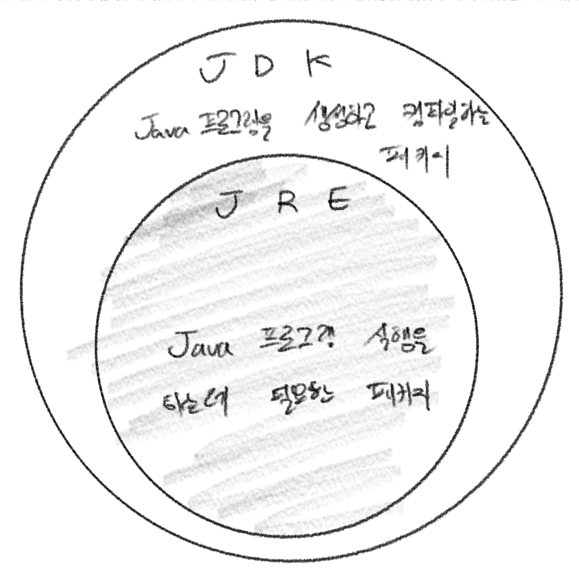 J D K
Java 프로그램을 생성하고 컴파일하는
패키지
J R E
Java 프로그램 실행을
하는데 필요한 패키지